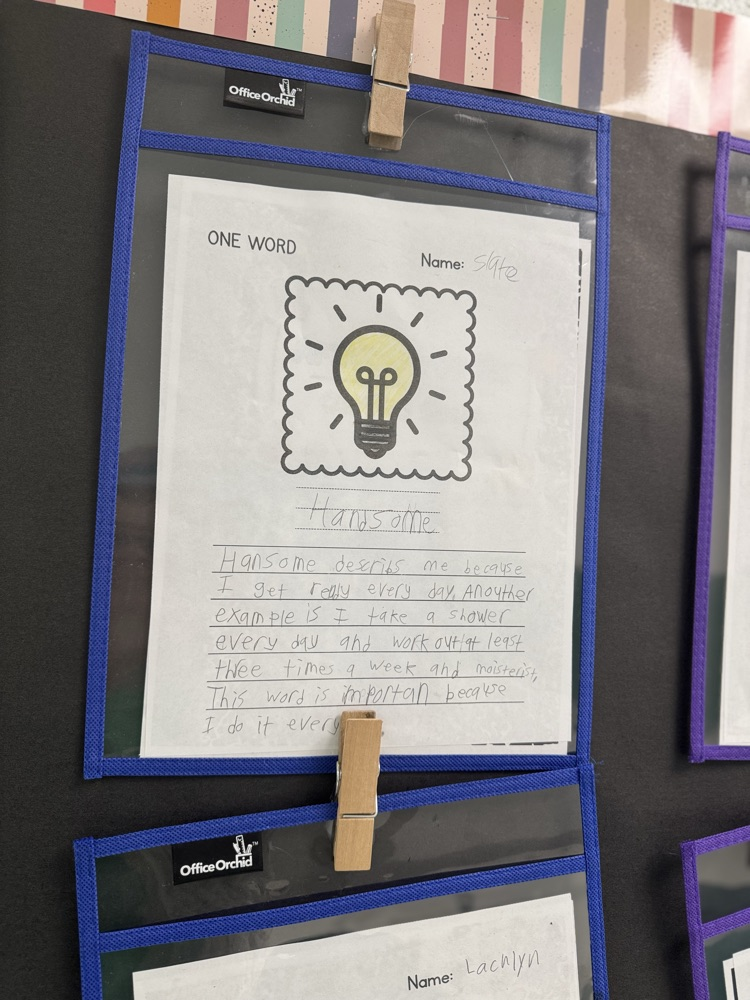 Office Orchid™
ONE WORD
Name: Slate
Handsome
Hansome describs me because
I get redy every day. Anouther
example is I take a shower
every day and work out at least
three times a week and moisterist,
This word is importan because
I do it every
Office Orchid™
Name: Lachlyn